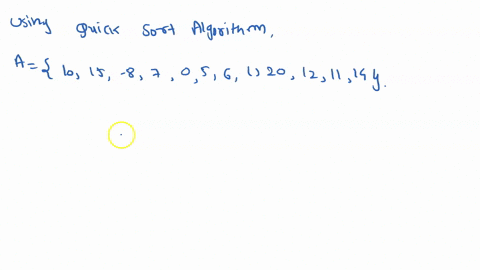 Using Quick Sort Algorithm,
A = { 10, 15, -8, 7, 0, 5, 6, 1, 20, 12, 11, 14 }.